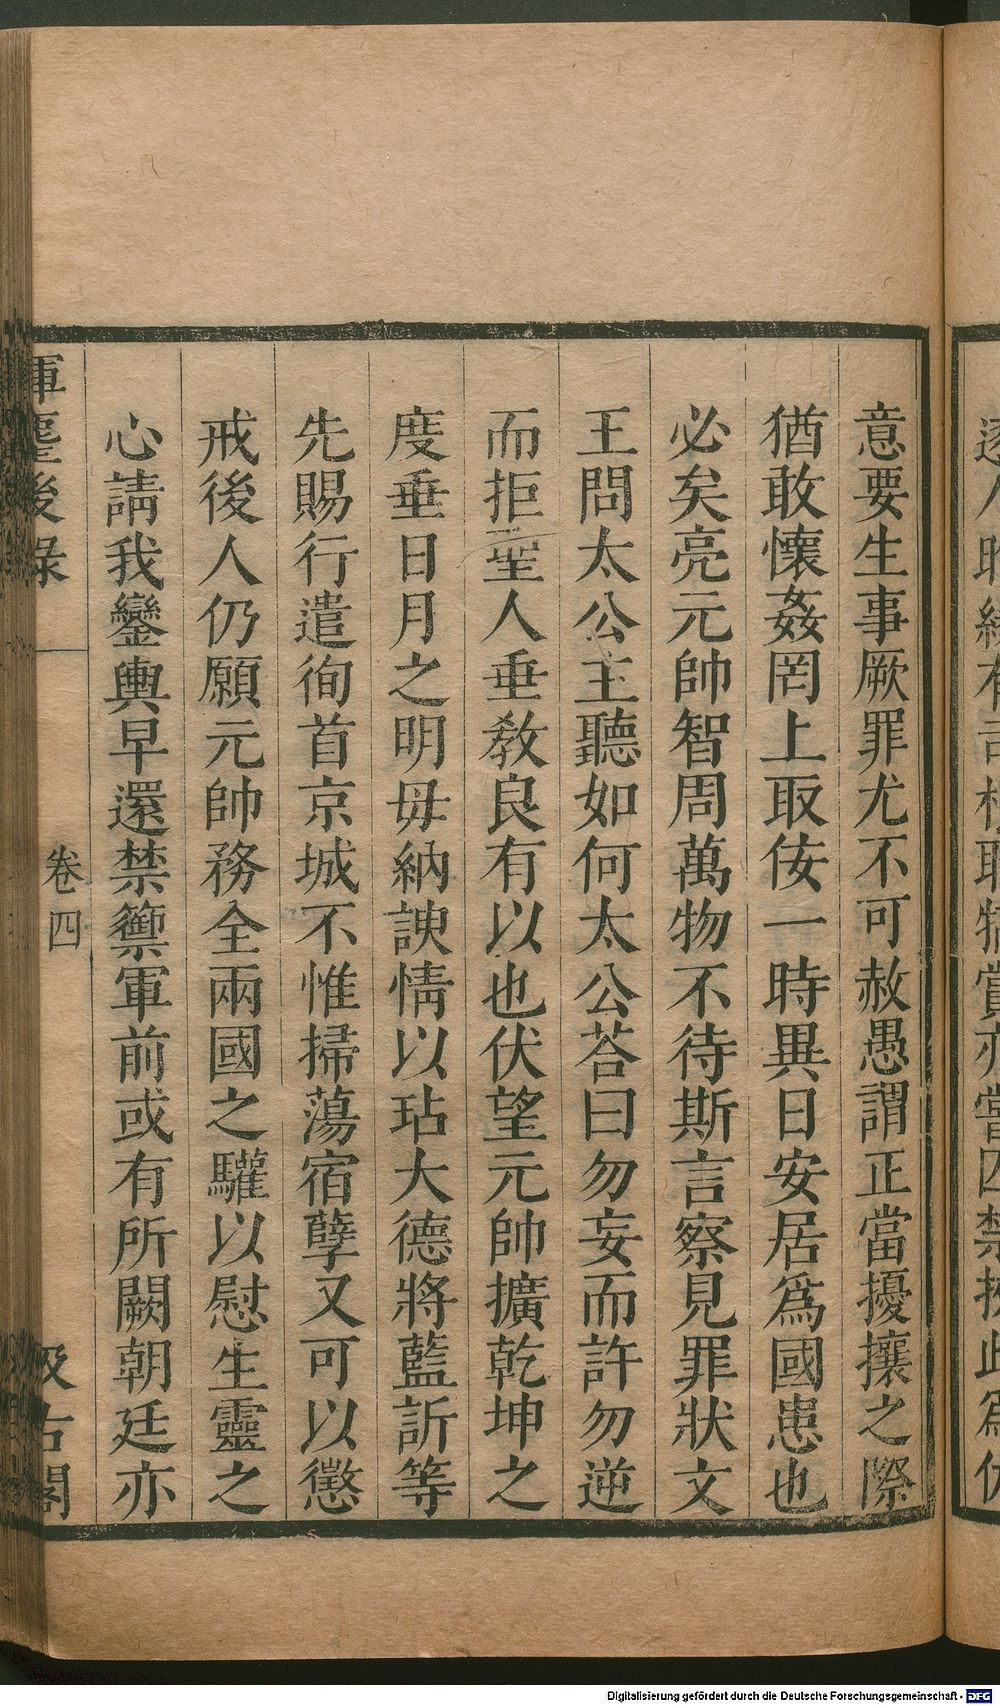 意要生事厥罪尤不可赦愚謂正當擾攘之際
猶敢懷姦罔上取侫一時異日安居爲國患也
必矣亮元帥智周萬物不待斯言察見罪狀文
王問太公主聽如何太公荅曰勿妄而許勿逆
而拒聖人垂教良有以也伏望元帥擴乾坤之
度垂日月之明毋納諛情以玷大德將藍訢等
先賜行遣徇首京城不惟掃蕩宿孽又可以懲
戒後人仍願元帥務全兩國之驩以慰生靈之
心請我鑾輿早還禁籞軍前或有所闕朝廷亦
揮麈後錄 卷四 汲古閣
Digitalisierung gefördert durch die Deutsche Forschungsgemeinschaft - DFG